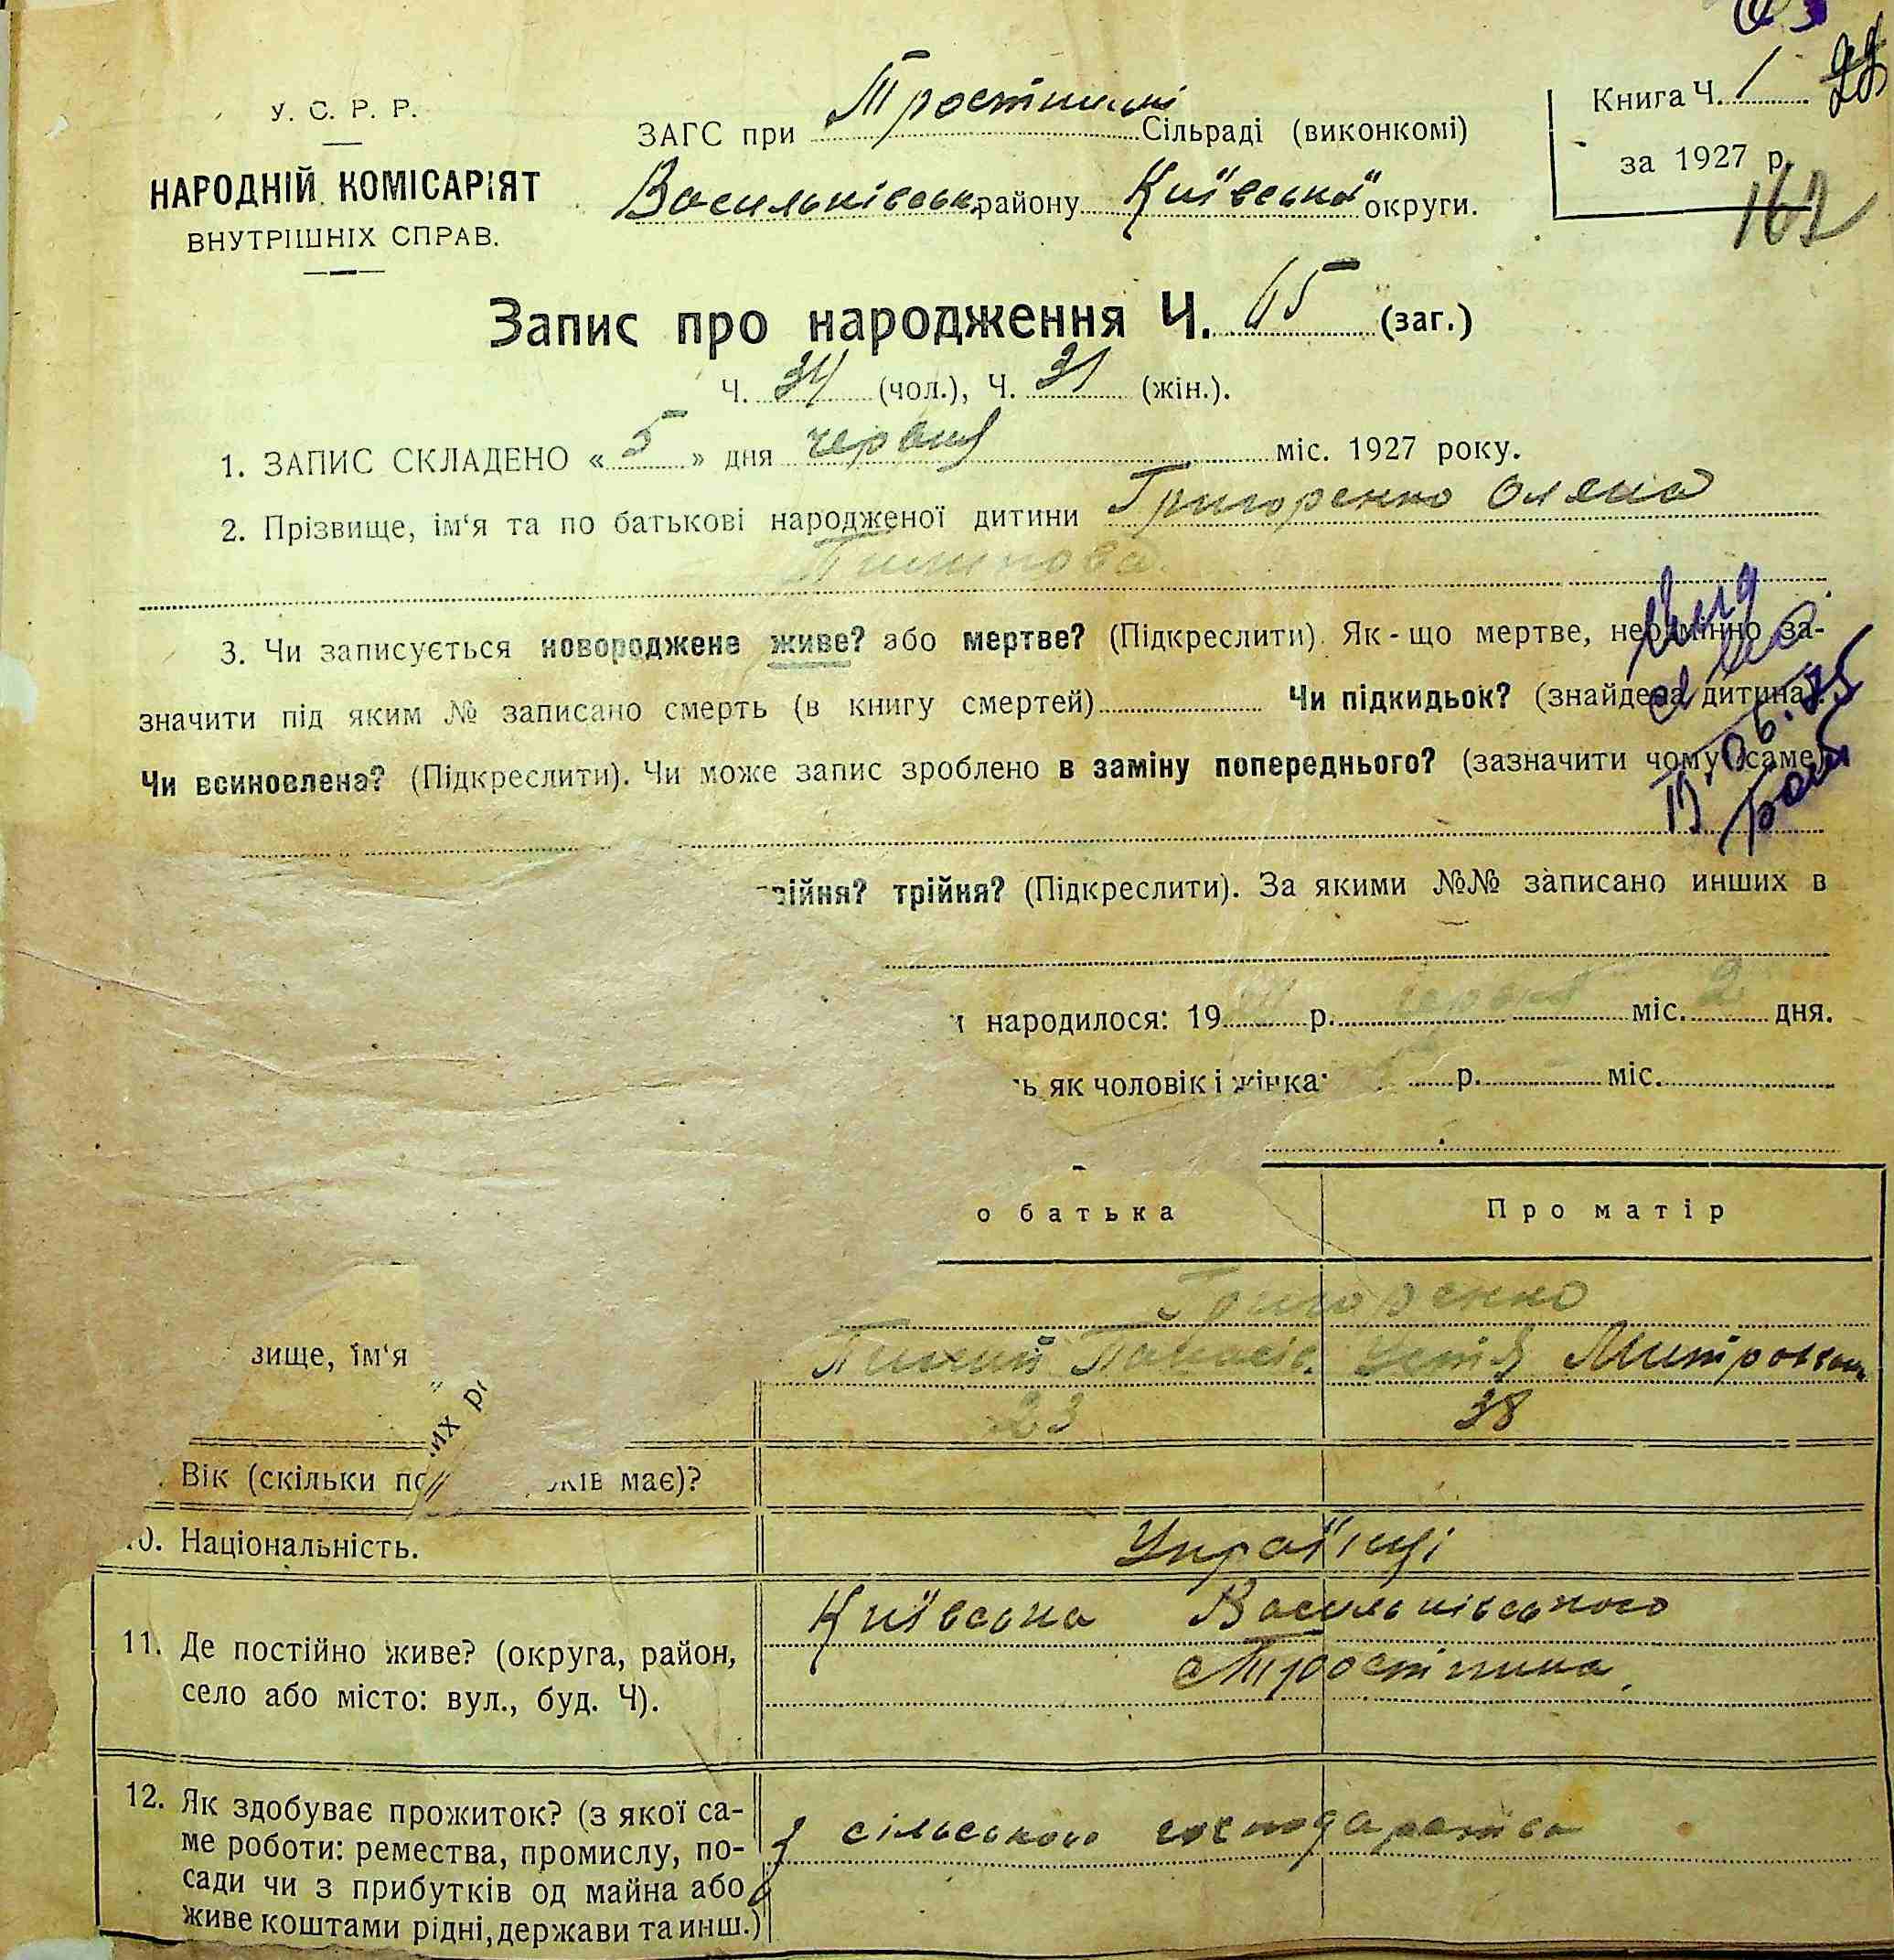 У. С. Р. Р.
НАРОДНІЙ КОМІСАРІЯТ
ВНУТРІШНІХ СПРАВ.
ЗАГС при Сільраді (виконкомі)
Васильківськ. району Київська округи.
Книга Ч. 1
за 1927 р.
162
Запис про народження Ч. 65 (заг.)
Ч. 34 (чол.), Ч. 31 (жін.).
1. ЗАПИС СКЛАДЕНО « 5 » дня червня міс. 1927 року.
2. Прізвище, ім‘я та по батькові народженої дитини Григоренко Оляна
3. Чи записується новороджене живе? або мертве? (Підкреслити). Як-що мертве, неодмінно за-
значити під яким № записано смерть (в книгу смертей) Чи підкидьок? (знайдена дитина).
Чи всиновлена? (Підкреслити). Чи може запис зроблено в заміну попереднього? (зазначити чому саме)
війня? трійня? (Підкреслити). За якими №№ записано инших в
народилося: 19 р. червня міс. 2 дня.
ь як чоловік і жінка: р. міс.
о батька Про матір
Григоренко
зище, їм‘я
Панасів. Устія Митрохван.
их р
23 38
Вік (скільки по ків має)?
10. Національність. Українці
11. Де постійно живе? (округа, район,
село або місто: вул., буд. Ч).
Київська Васильківського
с Тростинка
12. Як здобуває прожиток? (з якої са-
ме роботи: ремества, промислу, по-
сади чи з прибутків од майна або
живе коштами рідні, держави та инш.)
З сільського господарства